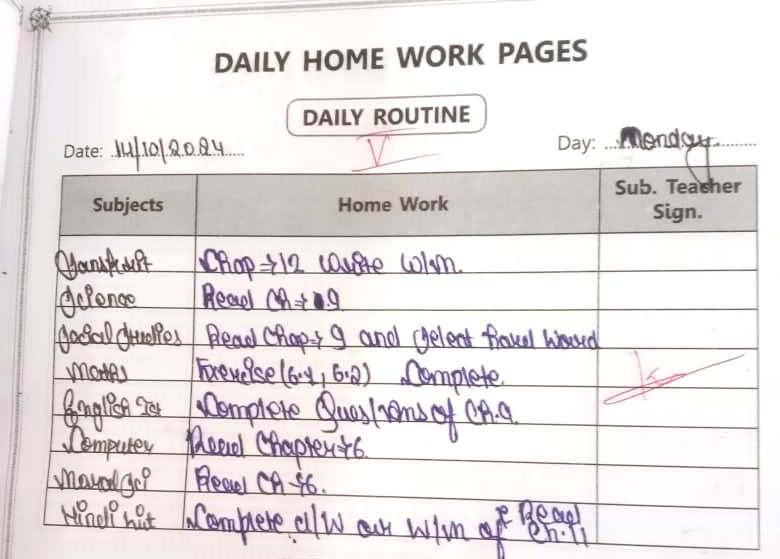 DAILY HOME WORK PAGES
DAILY ROUTINE
Date: 14/10/2024 Day: Monday
V
Subjects Home Work Sub. Teacher Sign.
Sanskrit Chap → 12 write w/m.
Science Read Ch → 9
Social Studies Read Chap → 9 and Select hard word
Maths Exercise (6.1, 6.2) Complete.
English Complete Questions of Ch.9.
Computer Read Chapter → 6.
Moral Sci Read Ch → 6.
Hindi Complete c/w w/m of & Read Ch.11